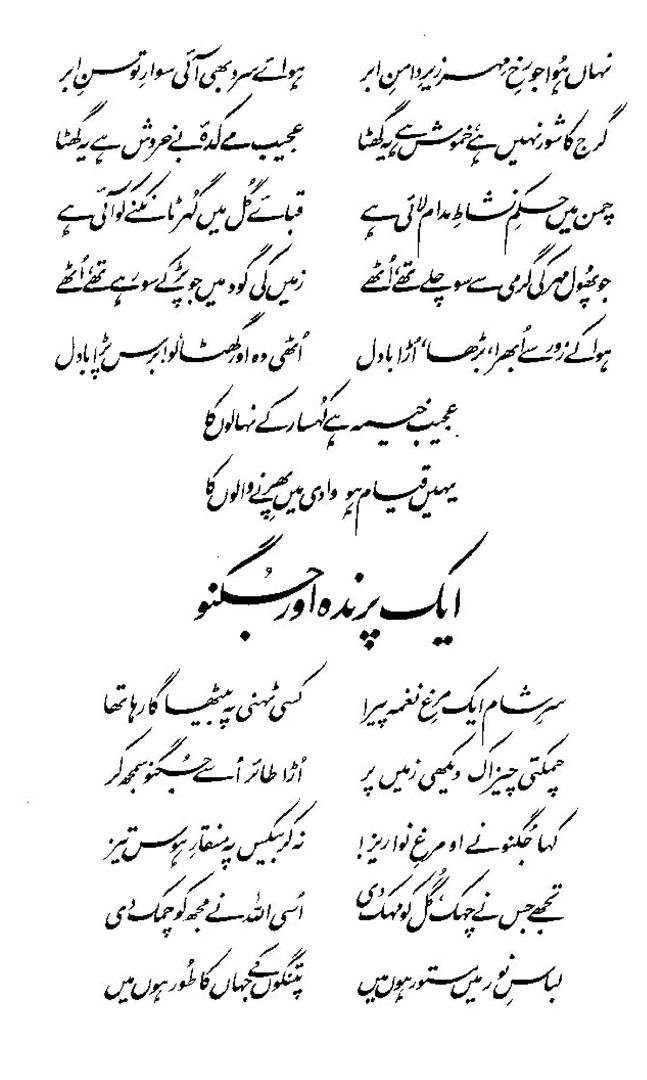 نہاں ہُوا جو رخِ مہر زیرِ دامنِ ابر ہوائے سرد بھی آئی سوارِ توسنِ ابر
گرج کا شور نہیں ہے، خموش ہے یہ گھٹا عجیب مے کدۂ بے خروش ہے یہ گھٹا
چمن میں حکمِ نشاطِ مدام لائی ہے قبائے گُل میں گُہر ٹانکنے کو آئی ہے
جو پھُول مہر کی گرمی سے سو چلے تھے، اُٹھے زمیں کی گود میں جو پڑ کے سو رہے تھے، اُٹھے
ہوا کے زور سے اُبھرا، بڑھا، اُڑا بادل اُٹھی وہ اور گھٹا، لو! برس پڑا بادل
عجیب خیمہ ہے کُہسار کے نہالوں کا
یہیں قیام ہو وادی میں پھِرنے والوں کا
ایک پرندہ اور جُگنو
سرِ شام ایک مرغِ نغمہ پیرا کسی ٹہنی پہ بیٹھا گا رہا تھا
چمکتی چیز اک دیکھی زمیں پر اُڑا طائر اُسے جُگنو سمجھ کر
کہا جُگنو نے او مرغِ نواریز! نہ کر بیکس پہ منقارِ ہوس تیز
تجھے جس نے چہک، گُل کو مہک دی اُسی اللہ نے مجھ کو چمک دی
لباسِ نور میں مستور ہوں میں پتنگوں کے جہاں کا طُور ہوں میں